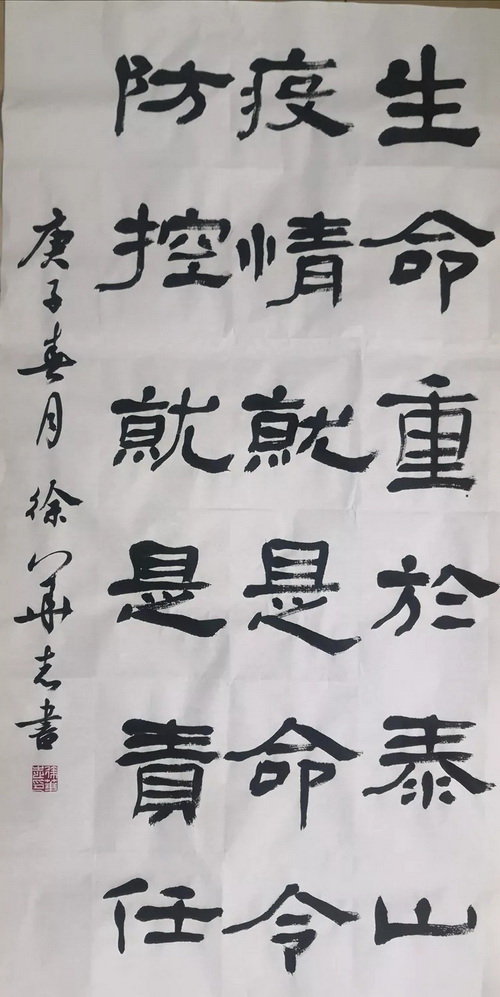 生命重於泰山
疫情就是命令
防控就是責任
庚子春月徐華志書